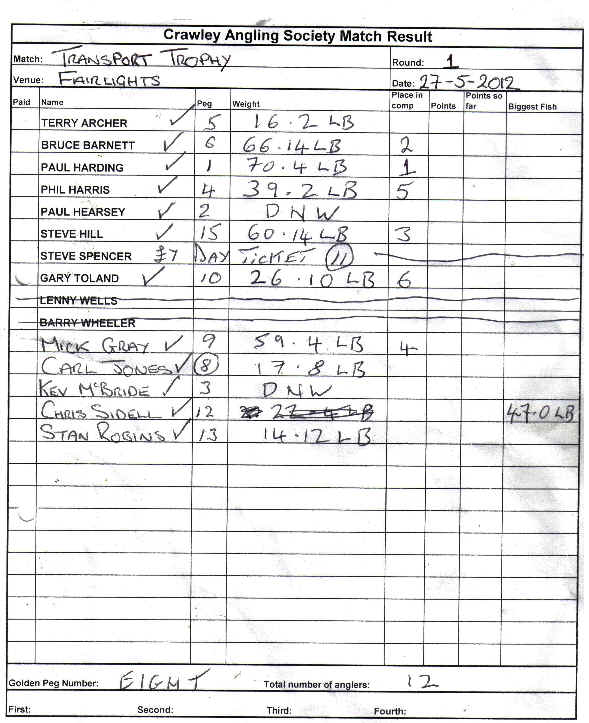 Crawley Angling Society Match Result
Match: TRANSPORT TROPHY Round: 1
Venue: FAIRLIGHTS Date: 27-5-2012
Paid Name Peg Weight Place in comp Points Points so far Biggest Fish
TERRY ARCHER ✓ 5 16.2 LB
BRUCE BARNETT ✓ 6 66.14 LB 2
PAUL HARDING ✓ 1 70.4 LB 1
PHIL HARRIS ✓ 4 39.2 LB 5
PAUL HEARSEY ✓ 2 DNW
STEVE HILL ✓ 15 60.14 LB 3
STEVE SPENCER £7 DAY TICKET 11
GARY TOLAND ✓ 10 26.10 LB 6
LENNY WELLS
BARRY WHEELER
MICK GRAY ✓ 9 59.4 LB 4
CARL JONES ✓ 8 17.8 LB
KEV McBRIDE ✓ 3 DNW
CHRIS SIDELL ✓ 12 22.4 LB 47.0 LB
STAN ROBINS ✓ 13 14.12 LB
Golden Peg Number: EIGHT Total number of anglers: 12
First: Second: Third: Fourth: